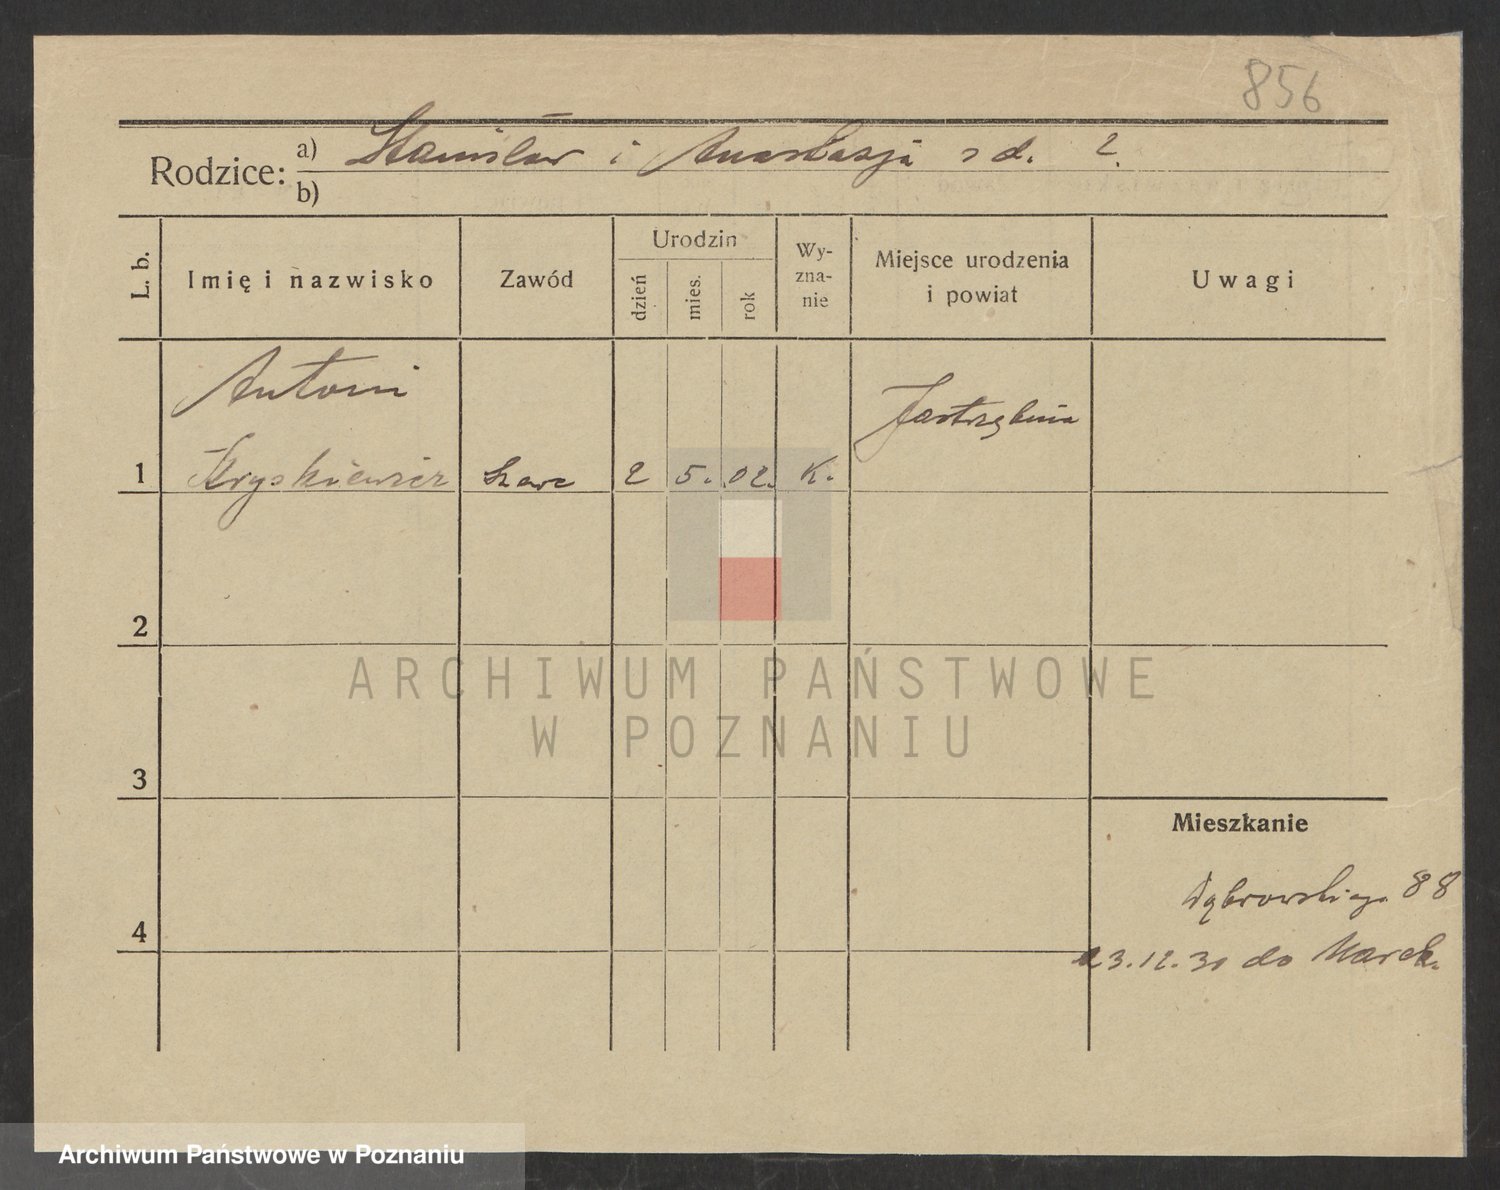 856
Rodzice: a) Stanisław i Anastazja z d. ?
b)
L. b.
Imię i nazwisko
Zawód
Urodzin
dzień
mies.
rok
Wy-
zna-
nie
Miejsce urodzenia
i powiat
Uwagi
Antoni
Jastrzębnia
1
Szewc 2 5. 02. K.
2
ARCHIWUM PAŃSTWOWE
W POZNANIU
3
Mieszkanie
Dąbrowskiego 88
4
23.12.30 do
Archiwum Państwowe w Poznaniu